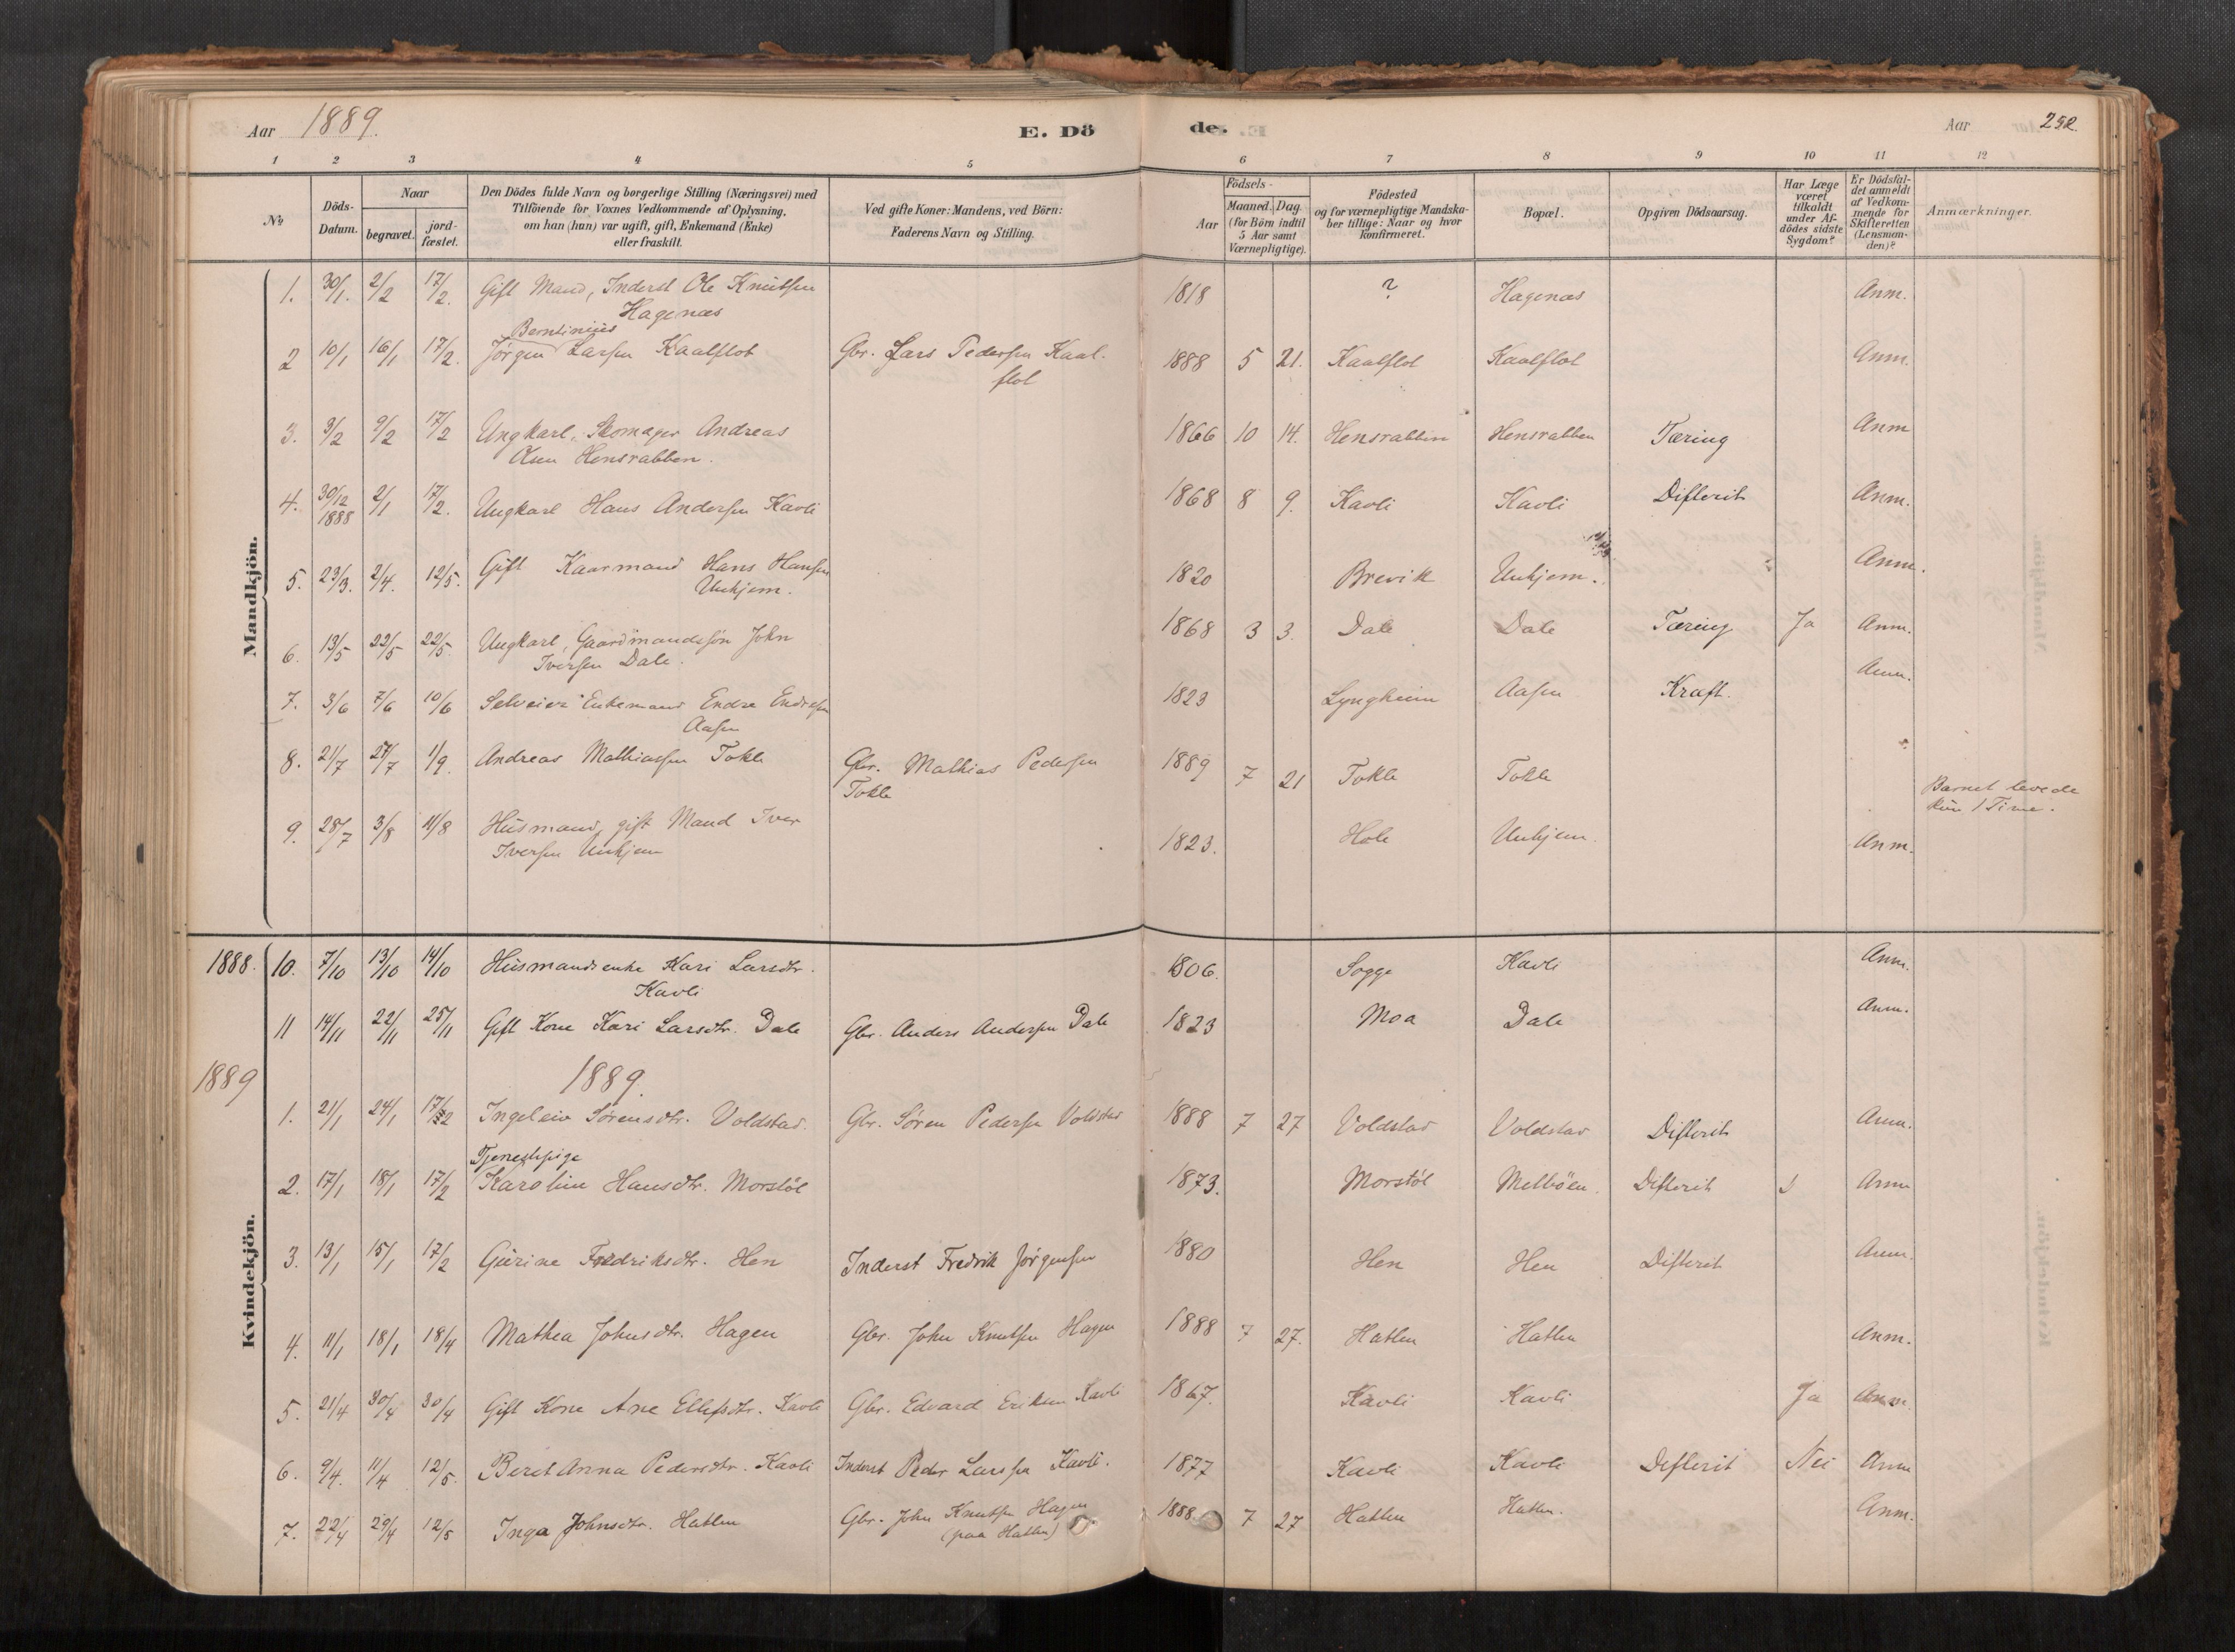 Aar 1889. E. Dö de. Aar 252.
1 2 3 4 5 6 7 8 9 10 11 12
No
Döds-Datum.
Naar
begravet.
jord-fæstet.
Den Dödes fulde Navn og borgerlige Stilling (Næringsvei) med
Tilföiende for Voxnes Vedkommende af Oplysning,
om han (hun) var ugift, gift, Enkemand (Enke)
eller fraskilt.
Ved gifte Koner: Mandens, ved Börn:
Faderens Navn og Stilling.
Födsels-
Aar
Maaned. Dag
(for Börn indtil
5 Aar samt
Værnepligtige).
Födested
og for værnepligtige Mandska-
ber tillige: Naar og hvor
konfirmeret.
Bopæl.
Opgiven Dödsaarsag.
Har Læge
været
tilkaldt
under Af-
dödes sidste
Sygdom?
Er Dödsfal-
det anmeldt
af Vedkom-
mende for
Skifteretten
(Lensman-
den)?
Anmærkninger.
Mandkjön.
1. 30/1. 2/2 17/2. Gift Mand, Inderst Ole Knutsen 1818 ? Hagenæs Anm.
Hagenæs
Berntinius
2 10/1 16/1 17/2. Jörgen Larsen Kaalflot Gbr. Lars Pedersen Kaal- 1888 5 21. Kaalflot Kaalflot Anm.
flot
3. 3/2 9/2 17/2 Ungkarl, Skomager Andreas 1866 10 14. Hensrabben Hensrabben Tæring Anm
Olsen Hensrabben.
4. 30/12 2/1 17/2. Ungkarl Hans Andersen Kavli 1868 8 9. Kavli Kavli Difterit Anm.
1888
5. 23/3. 2/4. 12/5. Gift Kaarmand Hans Hansen 1820 Brevik Unhjem. Anm.
Unhjem.
6. 13/5 22/5 22/5. Ungkarl, Gaardmandssön John 1868 3 3. Dale Dale Tæring Ja Anm.
Iversen Dale.
7. 3/6 7/6 10/6 Selveier Enkemand Endre Endresen 1823 Lyngheim Aasen Kræft. Anm.
Aasen
8. 21/7 27/7 1/9. Andreas Mathiassen Tokle Gbr. Mathias Pedersen 1889 7 21 Tokle Tokle Barnet levede
Tokle kun 1 Time.
9. 28/7 3/8 11/8 Husmand, gift Mand Iver 1823. Hole Unhjem. Anm.
Iversen Unhjem
Kvindekjön.
1888. 10. 7/10 13/10 14/10 Husmandsenke Kari Larsdtr. 1806. Sogge Kavli Anm.
Kavli
11 14/11 22/11 25/11 Gift Kone Kari Larsdtr. Dale Gbr. Anders Andersen Dale 1823 Moa Dale Anm.
1889 1889.
1. 21/1 24/1 17/2 Ingeleiv Sörensdtr. Voldstad. Gbr. Sören Pedersen Voldstad 1888 7 27 Voldstad Voldstad Difterit Anm.
Tjenestepige
2. 17/1 18/1 17/2 Karoline Hansdtr. Morstöl 1873. Morstöl Melböen. Difterit Anm
3. 13/1 15/1 17/2 Gurine Fredriksdtr. Hen Inderst Fredrik Jörgensen 1880 Hen Hen Difterit Anm.
4. 11/1 18/1 18/4 Mathea Johnsdtr. Hagen Gbr. John Knutsen Hagen 1888 7 27. Hatlen Hatlen Anm.
5. 21/4 30/4 30/4 Gift Kone Ane Ellefsdtr. Kavli Gbr. Edvard Eriksen Kavli 1867. Kavli Kavli Ja Anm.
6. 9/4. 11/4 12/5. Berit Anna Pedersdtr. Kavli Inderst Peder Larssen Kavli. 1877 Kavli Kavli Difterit Nei Anm
7. 22/4 29/4 12/5 Inga Johnsdtr. Hatlen Gbr. John Knutsen Hagen 1888 7 27 Hatlen Hatlen. Anm.
(paa Hatlen)